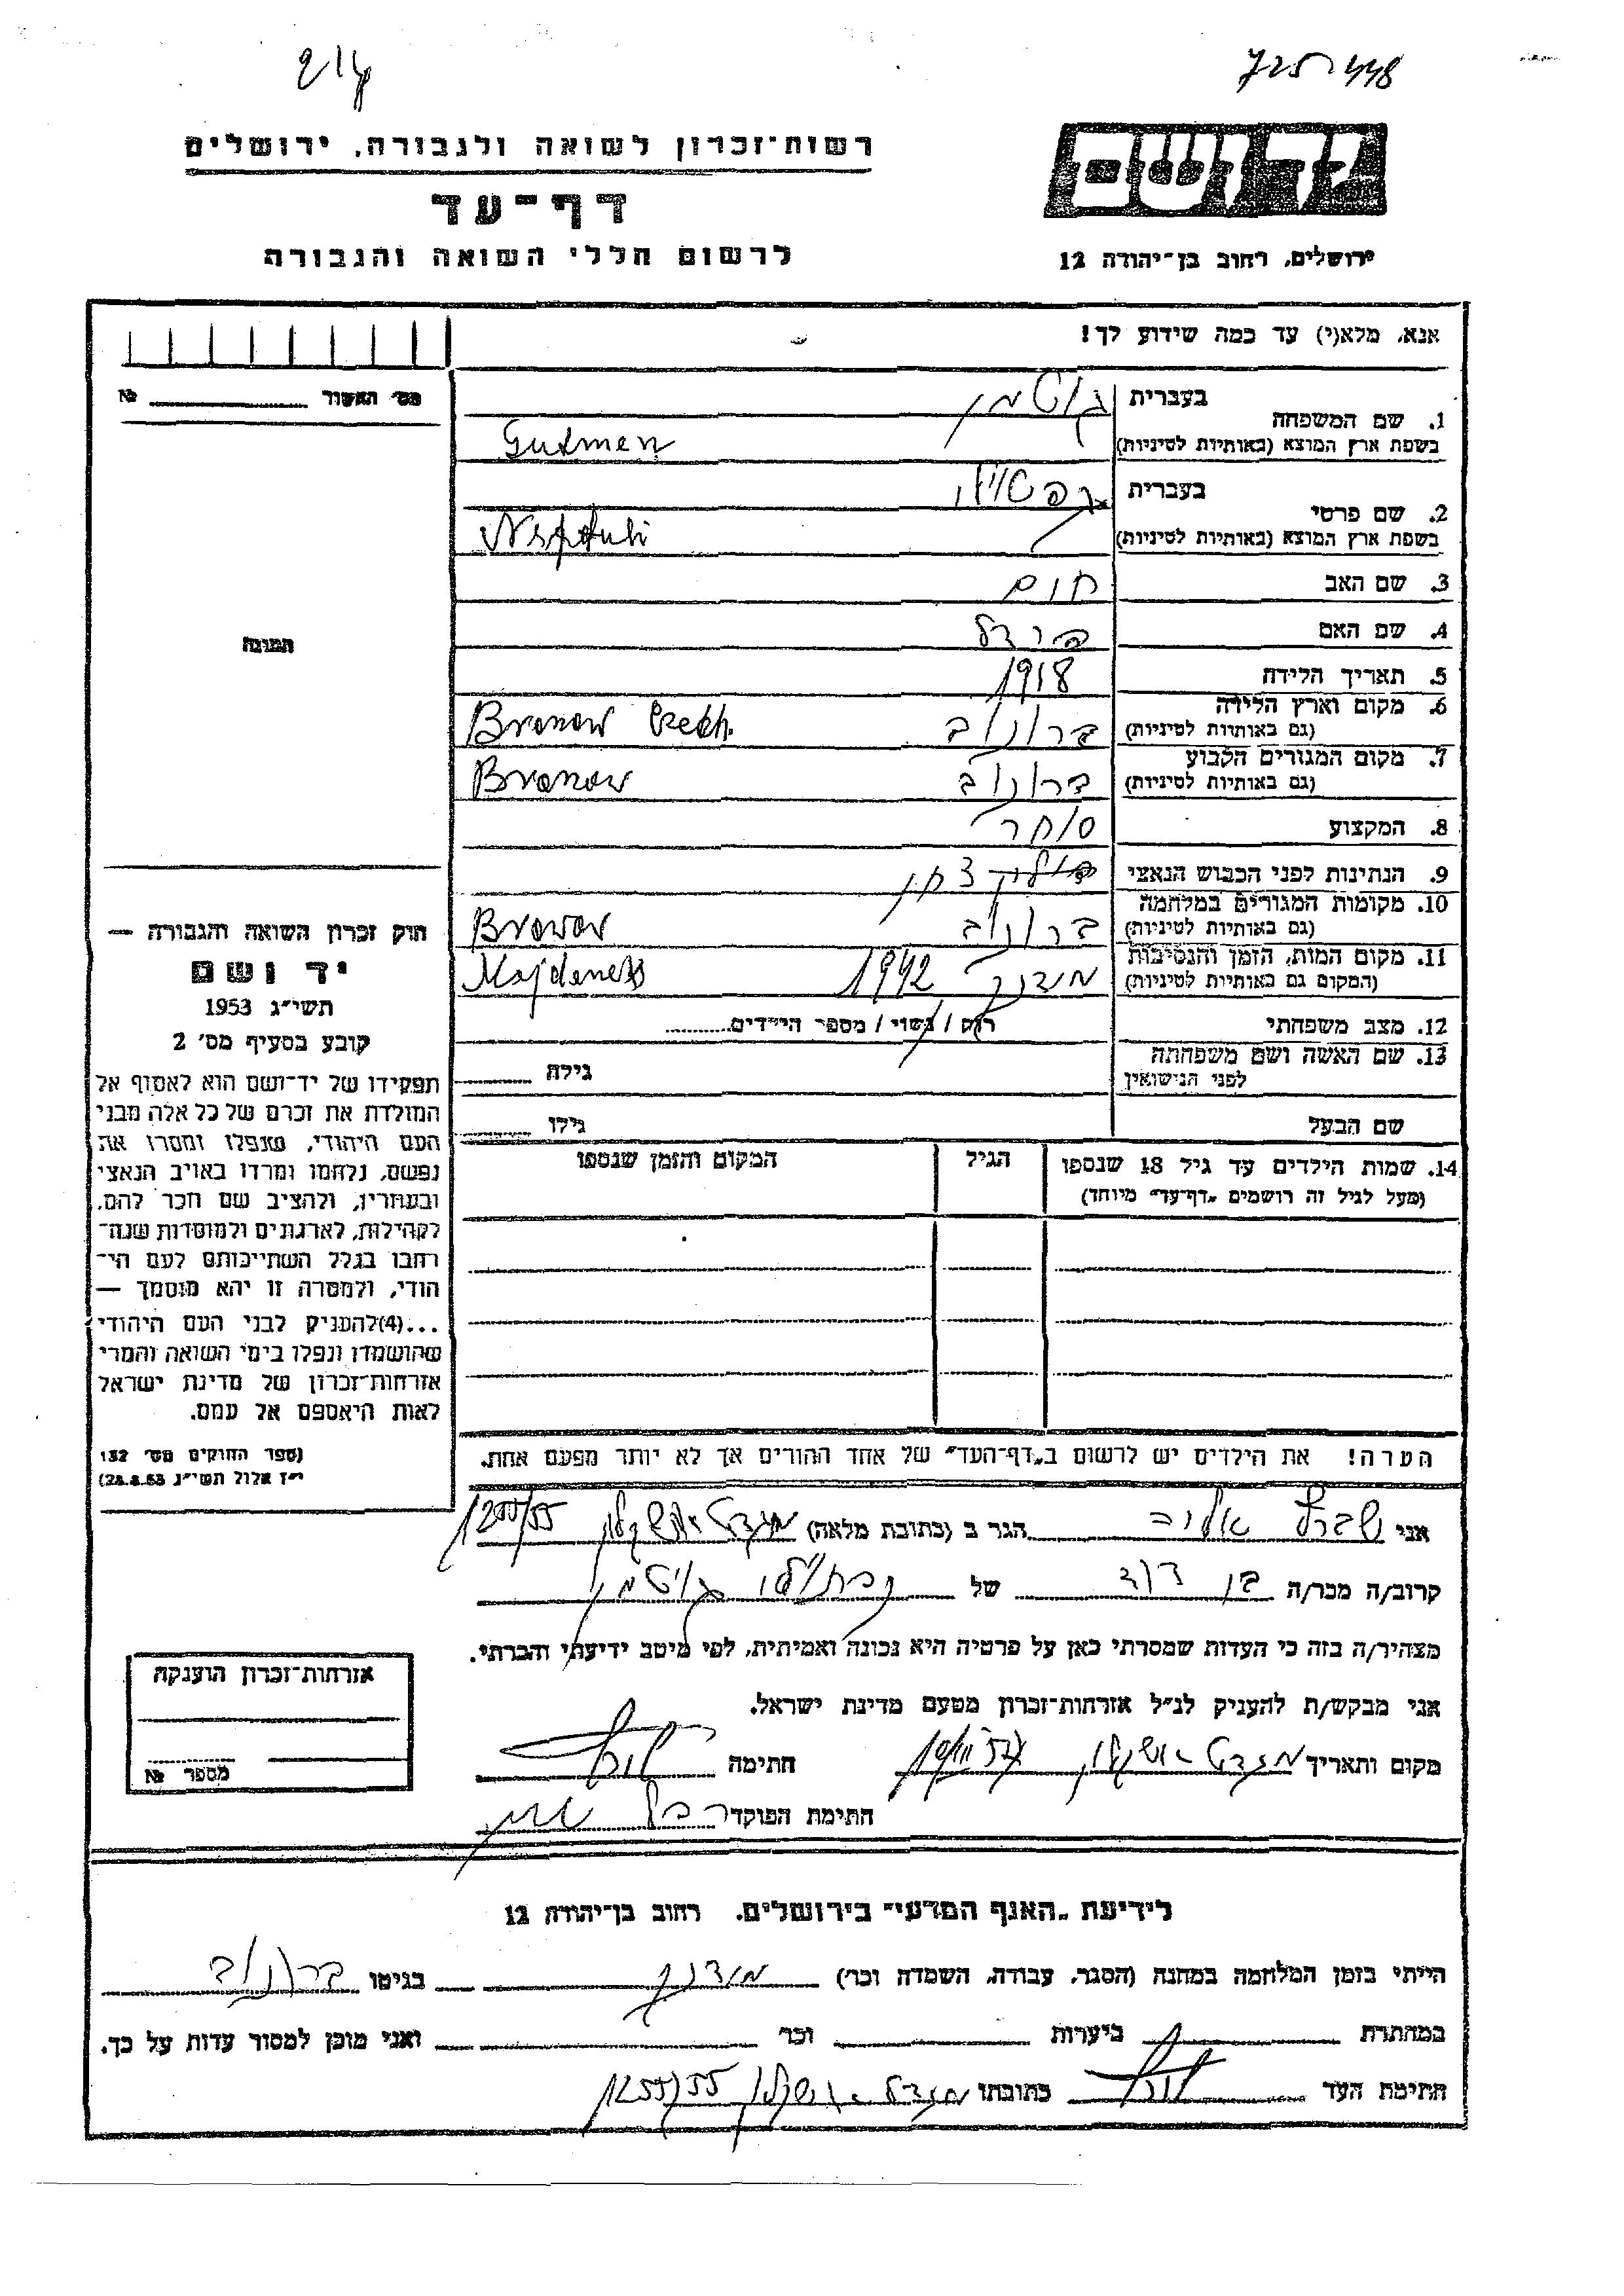 214
725 448
רשות-זכרון לשואה ולגבורה, ירושלים
יד ושם
דף-עד
לרשום חללי השואה והגבורה
ירושלים, רחוב בן-יהודה 12
אנא, מלא(י) עד כמה שידוע לך!
מס׳ האשור №
1. שם המשפחה
בעברית גוטמן
בשפת ארץ המוצא (באותיות לטיניות) Gutmen
2. שם פרטי
בעברית
בשפת ארץ המוצא (באותיות לטיניות) Naphtuli
3. שם האב חיים
4. שם האם פרדל
5. תאריך הלידה 1918
6. מקום וארץ הלידה (גם באותיות לטיניות) ברונוב Bronow
7. מקום המגורים הקבוע (גם באותיות לטיניות) ברונוב Bronow
8. המקצוע סוחר
9. הנתינות לפני הכבוש הנאצי
10. מקומות המגורים במלחמה (גם באותיות לטיניות) ברונוב Bronow
11. מקום המות, הזמן והנסיבות (המקום גם באותיות לטיניות) מידנק 1942 Majdenek
12. מצב משפחתי רוק / נשוי / מספר הילדים
13. שם האשה ושם משפחתה לפני הנישואין גילה
שם הבעל גילו
14. שמות הילדים עד גיל 18 שנספו
(מעל לגיל זה רושמים „דף-עד״ מיוחד)
הגיל
המקום והזמן שנספו
התמונה
חוק זכרון השואה והגבורה —
יד ושם
תשי״ג 1953
קובע בסעיף מס׳ 2
תפקידו של יד-ושם הוא לאסוף אל
המולדת את זכרם של כל אלה מבני
העם היהודי, שנפלו ומסרו את
נפשם, נלחמו ומרדו באויב הנאצי
ובעוזריו, ולהציב שם וזכר להם,
לקהילות, לארגונים ולמוסדות שנה־
רחבו בגלל השתייכותם לעם הי־
הודי, ולמטרה זו יהא מוסמך —
...(4)להעניק לבני העם היהודי
שהושמדו ונפלו בימי השואה והמרי
אזרחות-זכרון של מדינת ישראל
לאות היאספם אל עמם.
(ספר החוקים מס׳ 132
י״ז אלול תשי״ג 28.8.53)
הערה! את הילדים יש לרשום ב„דף-העד״ של אחד ההורים אך לא יותר מפעם אחת.
אני הגר ב (כתובת מלאה) מגדל אשקלון 1255/55
קרוב/ה מכר/ה בן דוד של נפתולי גוטמן
מצהיר/ה בזה כי העדות שמסרתי כאן על פרטיה היא נכונה ואמיתית, לפי מיטב ידיעתי והכרתי.
אני מבקש/ת להעניק לנ״ל אזרחות-זכרון מטעם מדינת ישראל.
מקום ותאריך מגדל אשקלון חתימה
חתימת הפוקד
אזרחות-זכרון הוענקה
מספר №
לידיעת „האגף המדעי״ בירושלים, רחוב בן-יהודה 12
הייתי בזמן המלחמה במחנה (הסגר, עבודה, השמדה וכו׳) מידנק בגיטו ברונוב
במחתרת ביערות וכו׳ ואני מוכן למסור עדות על כך.
חתימת העד כתובתו מגדל אשקלון 1255/55